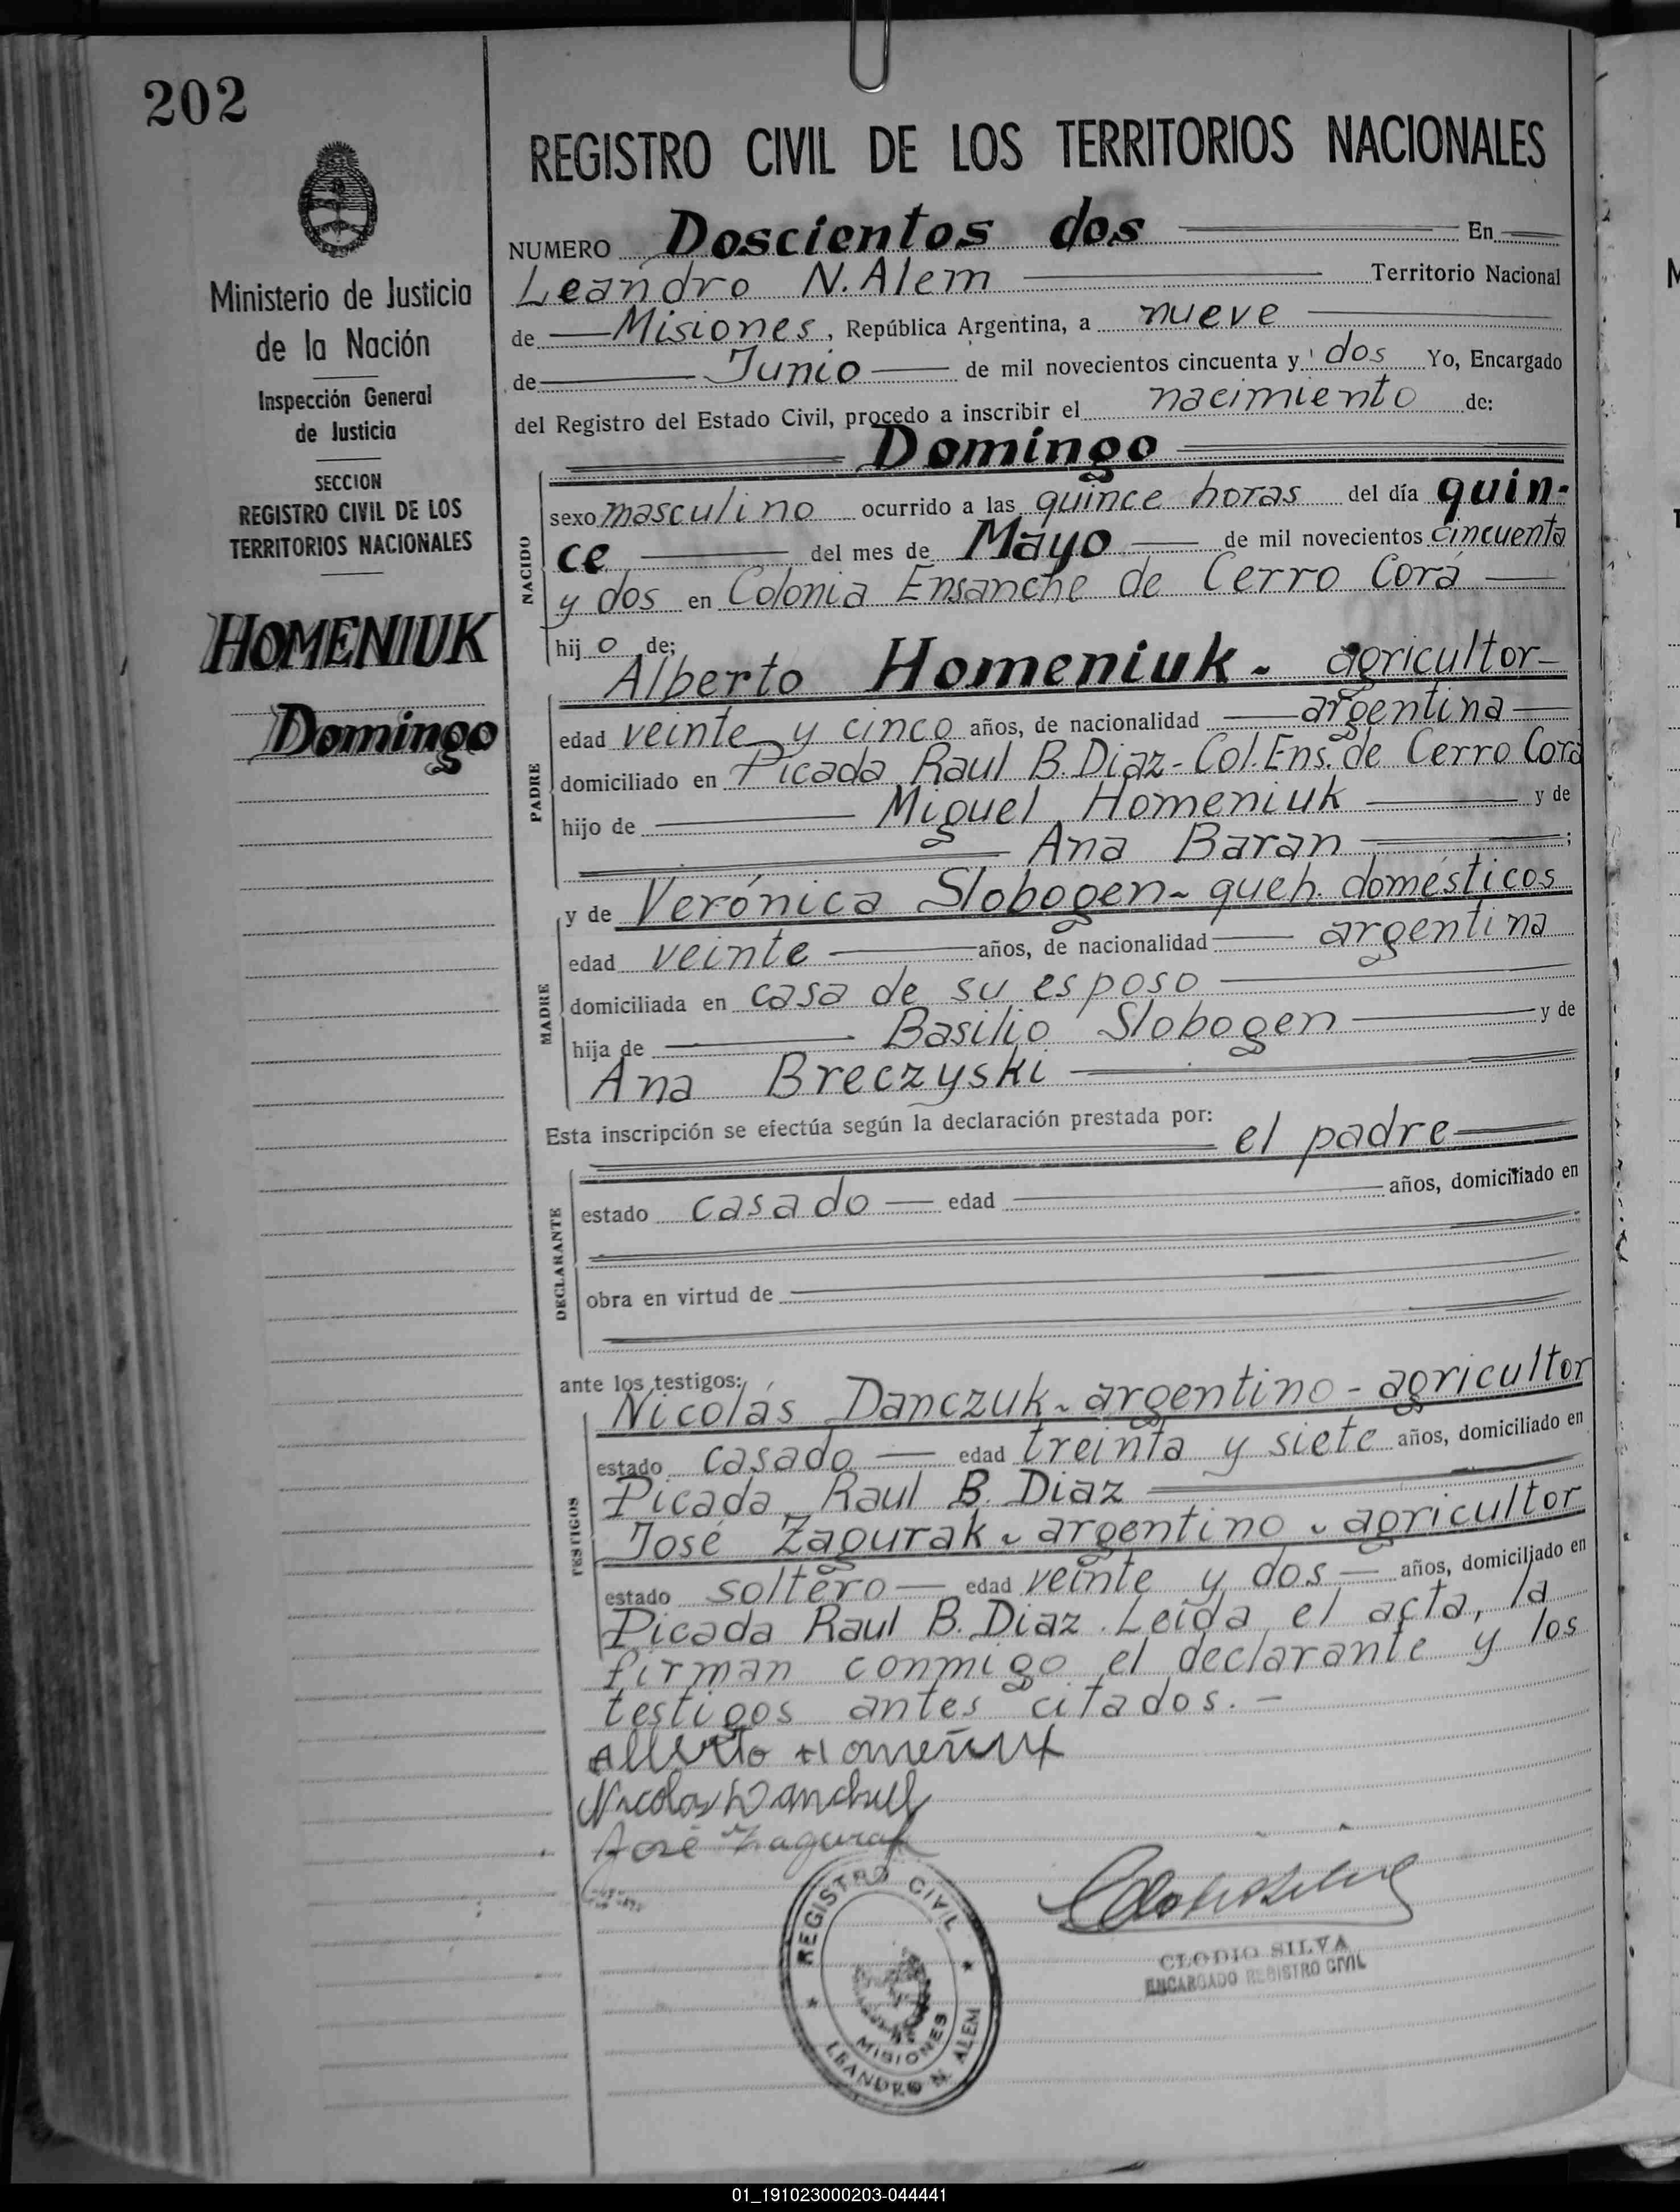 202
Ministerio de Justicia
de la Nación
Inspección General
de Justicia
SECCION
REGISTRO CIVIL DE LOS
TERRITORIOS NACIONALES
HOMENIUK
Domingo
REGISTRO CIVIL DE LOS TERRITORIOS NACIONALES
NUMERO Doscientos dos En
Leandro N. Alem Territorio Nacional
de Misiones, República Argentina, a nueve
de Junio de mil novecientos cincuenta y dos Yo, Encargado
del Registro del Estado Civil, procedo a inscribir el nacimiento de:
Domingo
NACIDO
sexo masculino ocurrido a las quince horas del día quin-
ce del mes de Mayo de mil novecientos cincuenta
y dos en Colonia Ensanche de Cerro Corá
hijo de;
Alberto Homeniuk - agricultor-
PADRE
edad veinte y cinco años, de nacionalidad argentina
domiciliado en Picada Raul B. Diaz - Col. Ens. de Cerro Cora
hijo de Miguel Homeniuk y de
Ana Baran ;
y de Verónica Slobogen - queh. domésticos
MADRE
edad veinte años, de nacionalidad argentina
domiciliada en casa de su esposo
hija de Basilio Slobogen y de
Ana Breczyski
Esta inscripción se efectúa según la declaración prestada por: el padre
DECLARANTE
estado casado edad años, domiciliado en
obra en virtud de
ante los testigos:
Nicolás Danczuk - argentino - agricultor
TESTIGOS
estado casado edad treinta y siete años, domiciliado en
Picada Raul B. Diaz
José Zagurak - argentino - agricultor
estado soltero edad veinte y dos años, domiciliado en
Picada Raul B. Diaz. Leída el acta, la
firman conmigo el declarante y los
testigos antes citados. -
Alberto Homeniuk
Nicolas Danchuk
José Zagurak
REGISTRO CIVIL
MISIONES
LEANDRO N. ALEM
CLODIO SILVA
ENCARGADO REGISTRO CIVIL
01_191023000203-044441